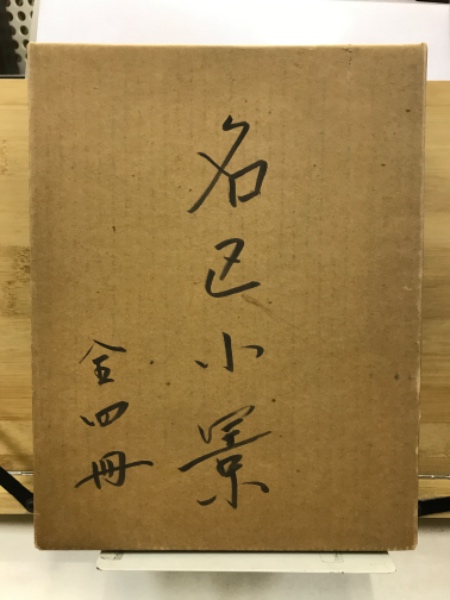 名区小景
全四冊